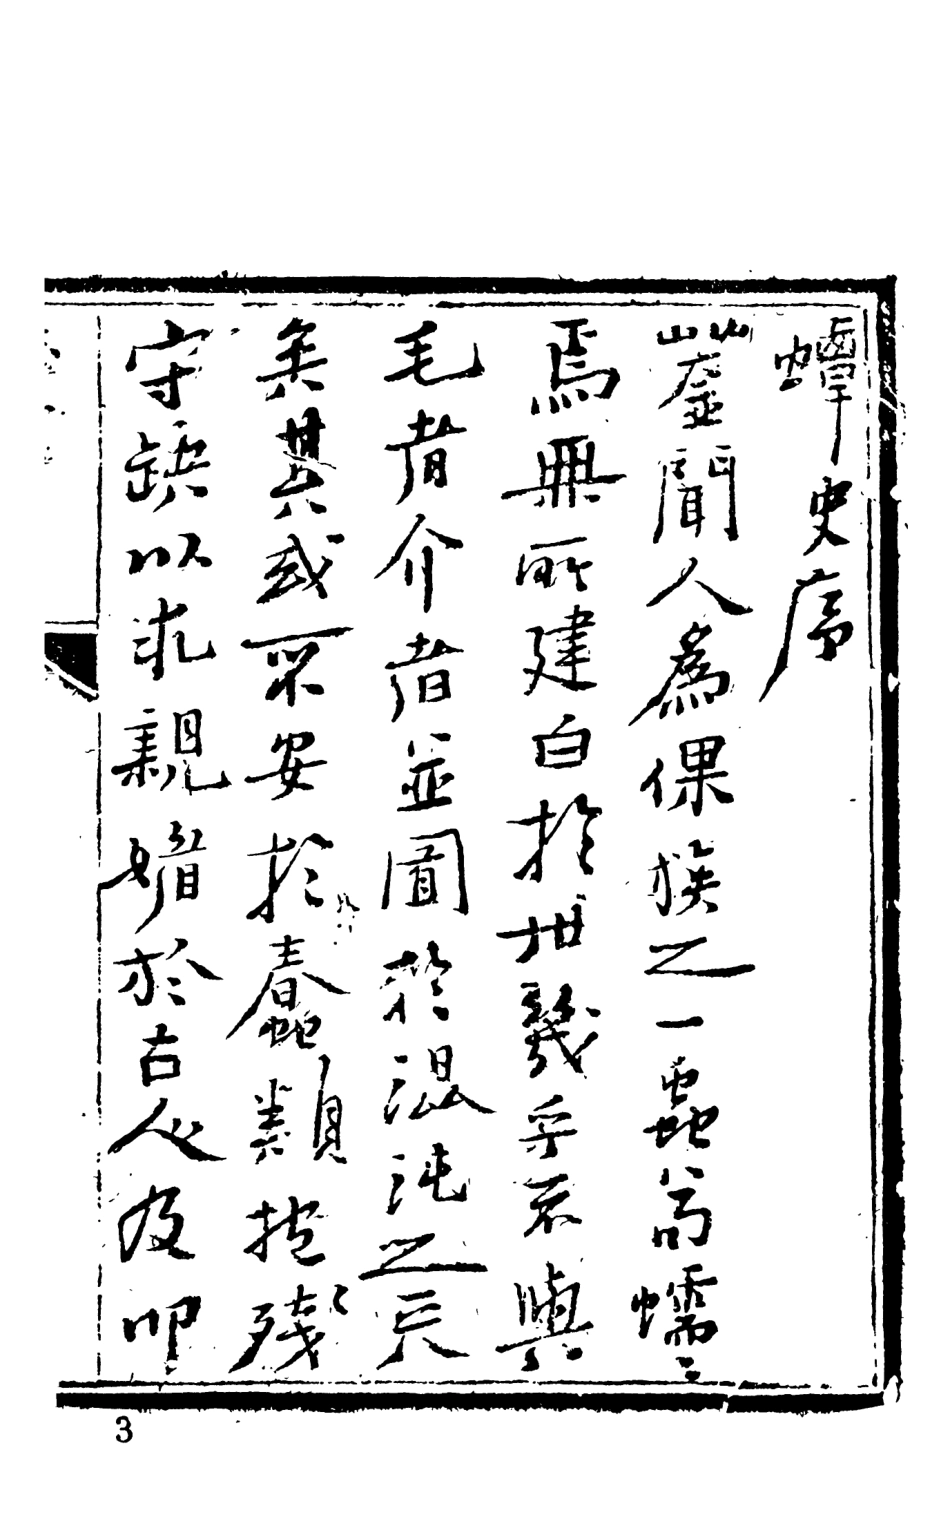 蟫史序
蠤聞人為倮族之一蟲苟蠕〻
焉無所建白於世幾乎不與
毛者介者並圖於混沌之天
矣其或不安於蠢類抱殘
守缺以求親媚於古人及叩
3